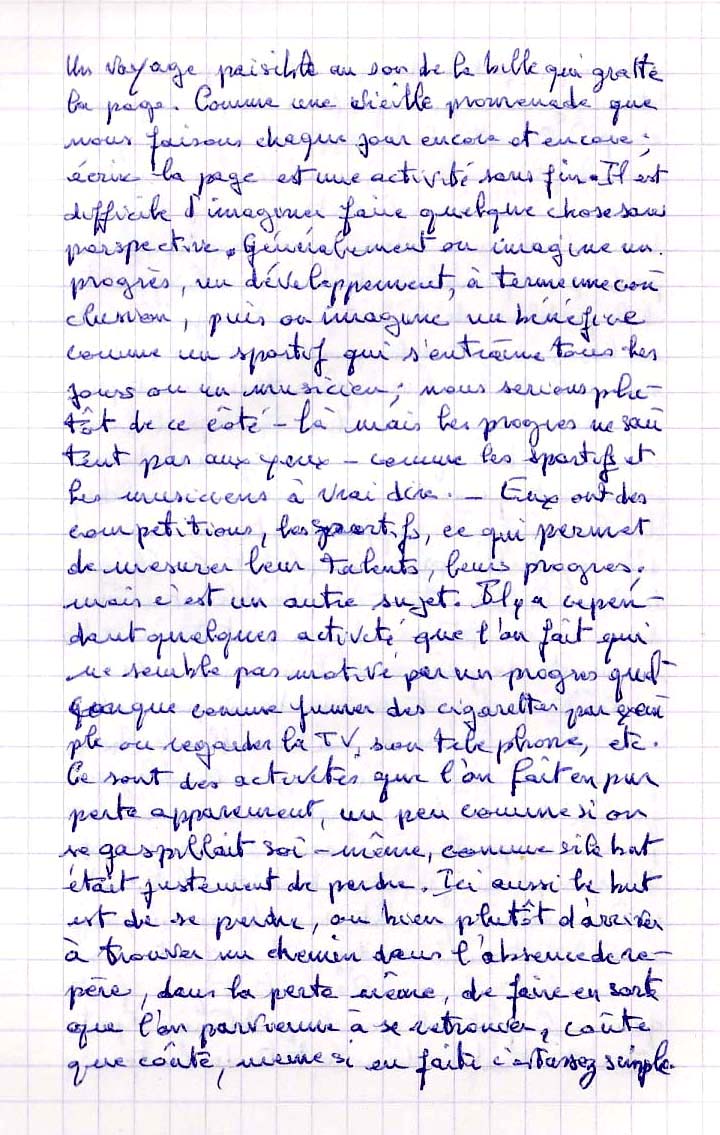 Un voyage paisible au son de la bille qui gratte
la page. Comme une vieille promenade que
nous faisons chaque jour encore et encore ;
écrire la page est une activité sans fin. Il est
difficile d'imaginer faire quelque chose sans
perspective. Généralement on imagine un
progrès, un développement, à terme une con
clusion, puis on imagine un bénéfice
comme un sportif qui s'entraîne tous les
jours ou un musicien ; nous serions plu-
tôt de ce côté-là mais les progrès ne sau
tent pas aux yeux - comme les sportifs et
les musiciens à vrai dire. - Eux ont des
compétitions, les sportifs, ce qui permet
de mesurer leur talents, leurs progrès,
mais c'est un autre sujet. Il y a cepen-
dant quelques activité que l'on fait qui
ne semble pas motivé par un progrès quel-
conque comme fumer des cigarettes par exem
ple ou regarder la TV, son téléphone, etc.
Ce sont des activités que l'on fait en pure
perte apparemment, un peu comme si on
se gaspillait soi-même, comme si le but
était justement de perdre. Ici aussi le but
est de se perdre, ou bien plutôt d'arriver
à trouver un chemin dans l'absence de re-
père, dans la perte même, de faire en sorte
que l'on parvienne à se retrouver, coûte
que coûte, même si en faite c'est assez simple.